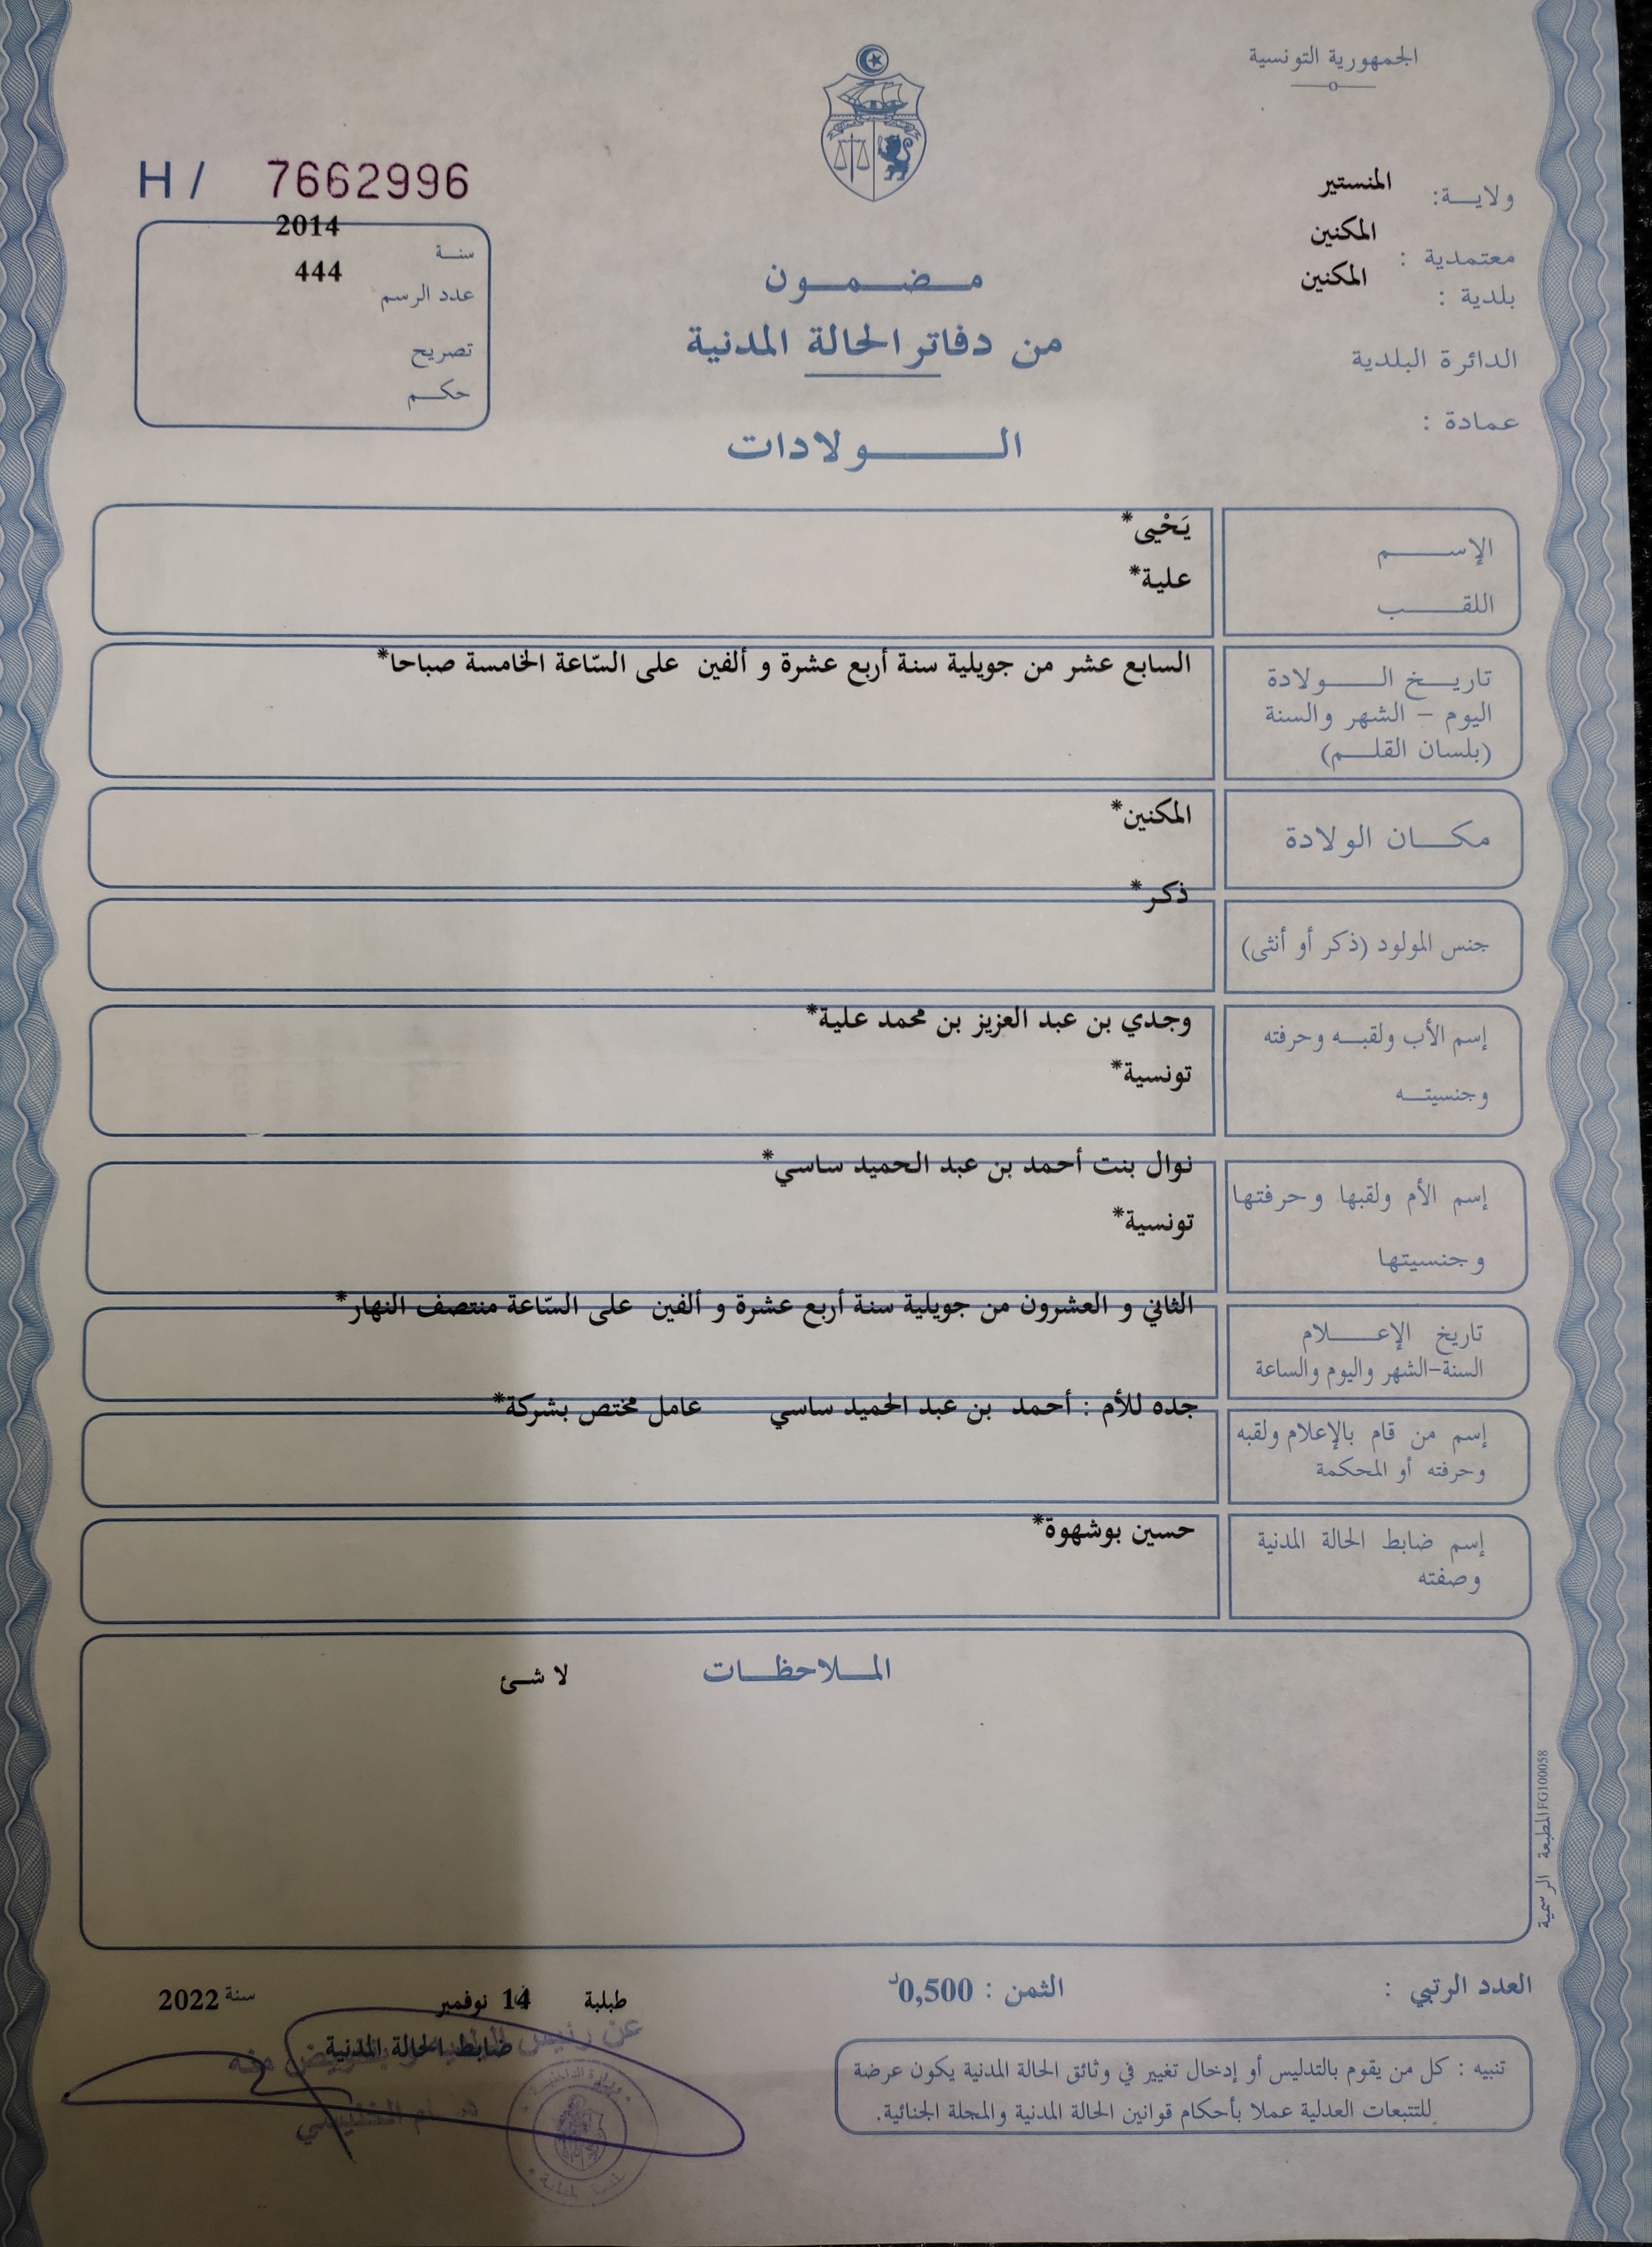 الجمهورية التونسية
ولاية: المنستير
معتمدية : المكنين
بلدية : المكنين
الدائرة البلدية
عمادة :
H / 7662996
سنة 2014
عدد الرسم 444
تصريح
حكم
مضمون
من دفاتر الحالة المدنية
الولادات
الإسم يَحْيى*
اللقب علية*
تاريخ الولادة السابع عشر من جويلية سنة أربع عشرة و ألفين على السّاعة الخامسة صباحا*
اليوم - الشهر والسنة
(بلسان القلم)
مكان الولادة المكنين*
جنس المولود (ذكر أو أنثى) ذكر*
إسم الأب ولقبه وحرفته وجدي بن عبد العزيز بن محمد علية*
وجنسيته تونسية*
إسم الأم ولقبها وحرفتها نوال بنت أحمد بن عبد الحميد ساسي*
وجنسيتها تونسية*
تاريخ الإعلام الثاني و العشرون من جويلية سنة أربع عشرة و ألفين على السّاعة منتصف النهار*
السنة-الشهر واليوم والساعة
إسم من قام بالإعلام ولقبه جده للأم : أحمد بن عبد الحميد ساسي عامل مختص بشركة*
وحرفته أو المحكمة
إسم ضابط الحالة المدنية حسين بوشهوة*
وصفته
الملاحظات لا شئ
المطبعة الرسمية FG100058
العدد الرتبي :
الثمن : 0,500د
طبلبة 14 نوفمبر سنة 2022
عن رئيس
ضابط الحالة المدنية
منه
وزارة الداخلية
تنبيه : كل من يقوم بالتدليس أو إدخال تغيير في وثائق الحالة المدنية يكون عرضة
للتتبعات العدلية عملا بأحكام قوانين الحالة المدنية والمجلة الجنائية.